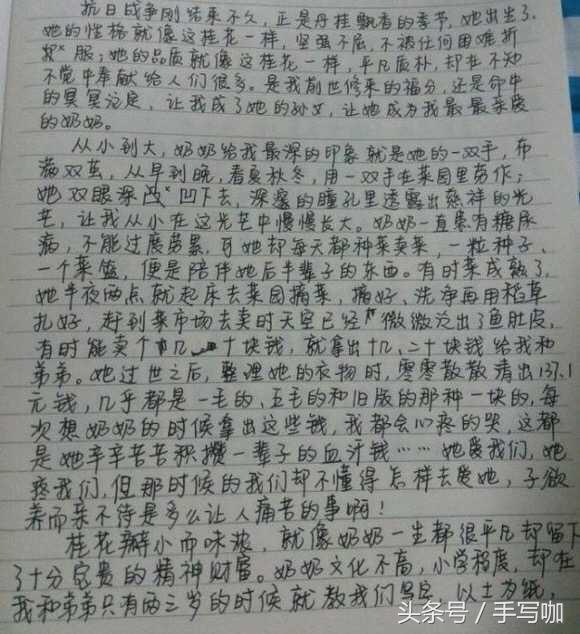 抗日战争刚结束不久，正是丹桂飘香的季节，她出生了。
她的性格就像这桂花一样，坚强不屈，不被任何困难折
服；她的品质就像这桂花一样，平凡质朴，却在不知
不觉中奉献给人们很多。是我前世修来的福分，还是命中
的冥冥注定，让我成了她的孙女，让她成为我最最亲爱
的奶奶。
从小到大，奶奶给我最深的印象就是她的一双手，布
满双茧，从早到晚，春夏秋冬，用一双手在菜园里劳作；
她双眼深凹下去，深邃的瞳孔里透露出慈祥的光
芒，让我从小在这光芒中慢慢长大。奶奶一直患有糖尿
病，不能过度劳累，可她却每天都种菜卖菜，一粒种子、
一个菜篮，便是陪伴她后半辈子的东西。有时菜成熟了，
她半夜两点就起床去菜园摘菜，摘好、洗净再用稻草
扎好，赶到菜市场去卖时天空已经微微泛出了鱼肚皮，
有时能卖个几十块钱，就拿出十几、二十块钱给我和
弟弟。她过世之后，整理她的衣物时，零零散散清出137.1
元钱，几乎都是一毛的、五毛的和旧版的那种一块的，每
次想奶奶的时候拿出这些钱，我都会心疼的哭，这都
是她辛辛苦苦积攒一辈子的血汗钱……她爱我们，她
疼我们，但那时候的我们却不懂得怎样去爱她，子欲
养而亲不待是多么让人痛苦的事啊！
桂花瓣小而味浓，就像奶奶一生都很平凡却留下
了十分宝贵的精神财富。奶奶文化不高，小学程度，却在
我和弟弟只有两三岁的时候就教我们写字，以土为纸，
头条号／手写咖